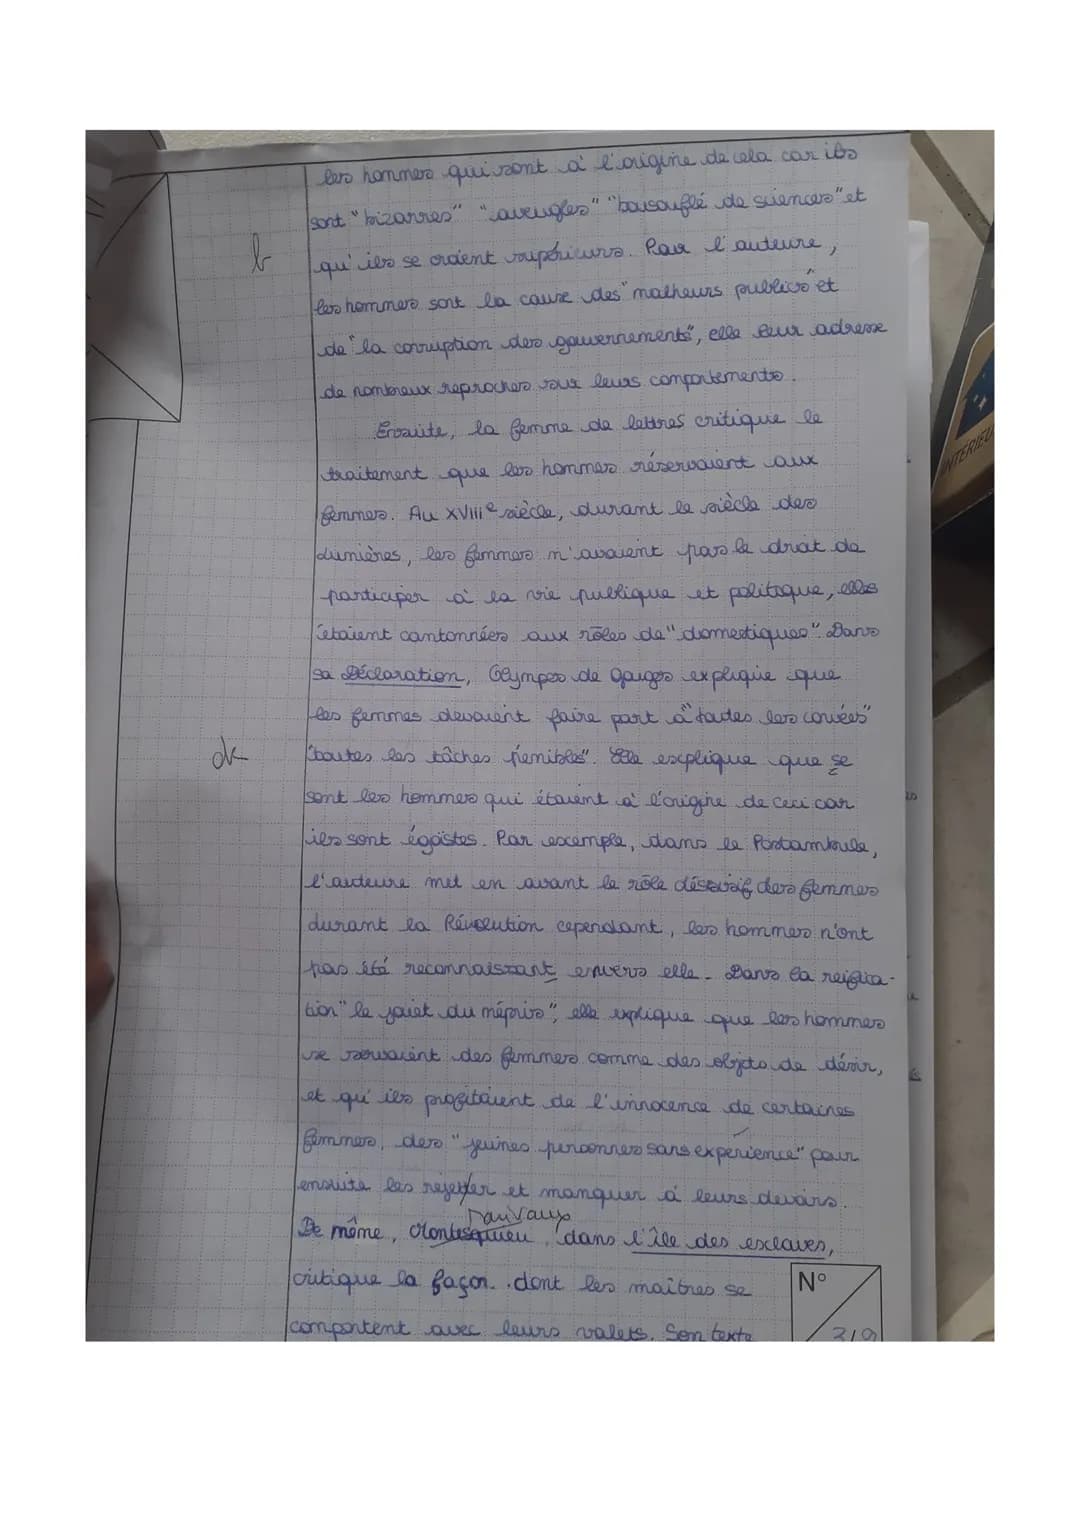 les hommes qui sont à l'origine de cela car ils
sont "bizarres" "aveugles" "boursouflé de sciences" et
b
qu'ils se croient supérieurs. Pour l'auteure,
les hommes sont la cause des "malheurs publics" et
de "la corruption des gouvernements", elle leur adresse
de nombreux reproches sur leurs comportements.
Ensuite, la femme de lettres critique le
traitement que les hommes réservaient aux
femmes. Au XVIIIe siècle, durant le siècle des
Lumières, les femmes n'avaient pas le droit de
participer à la vie publique et politique, elles
étaient cantonnées aux rôles de "domestiques". Dans
sa Déclaration, Olympes de Gouges explique que
les femmes devaient faire part à "toutes les corvées"
"toutes les tâches pénibles". Elle explique que se
ok
sont les hommes qui étaient à l'origine de ceci car
ils sont égoïstes. Par exemple, dans le Postambule,
l'auteure met en avant le rôle des femmes
durant la Révolution cependant, les hommes n'ont
pas été reconnaissant envers elle. Dans la reifica-
tion "le jouet du mépris", elle explique que les hommes
se servaient des femmes comme des objets de désir,
et qu'ils profitaient de l'innocence de certaines
femmes, des "jeunes personnes sans expérience" pour
ensuite les rejetter et manquer à leurs devoirs.
Marivaux
De même, Montesquieu, dans l'île des esclaves,
critique la façon dont les maîtres se
N°
comportent avec leurs valets. Son texte
3/9
INTÉRIEU